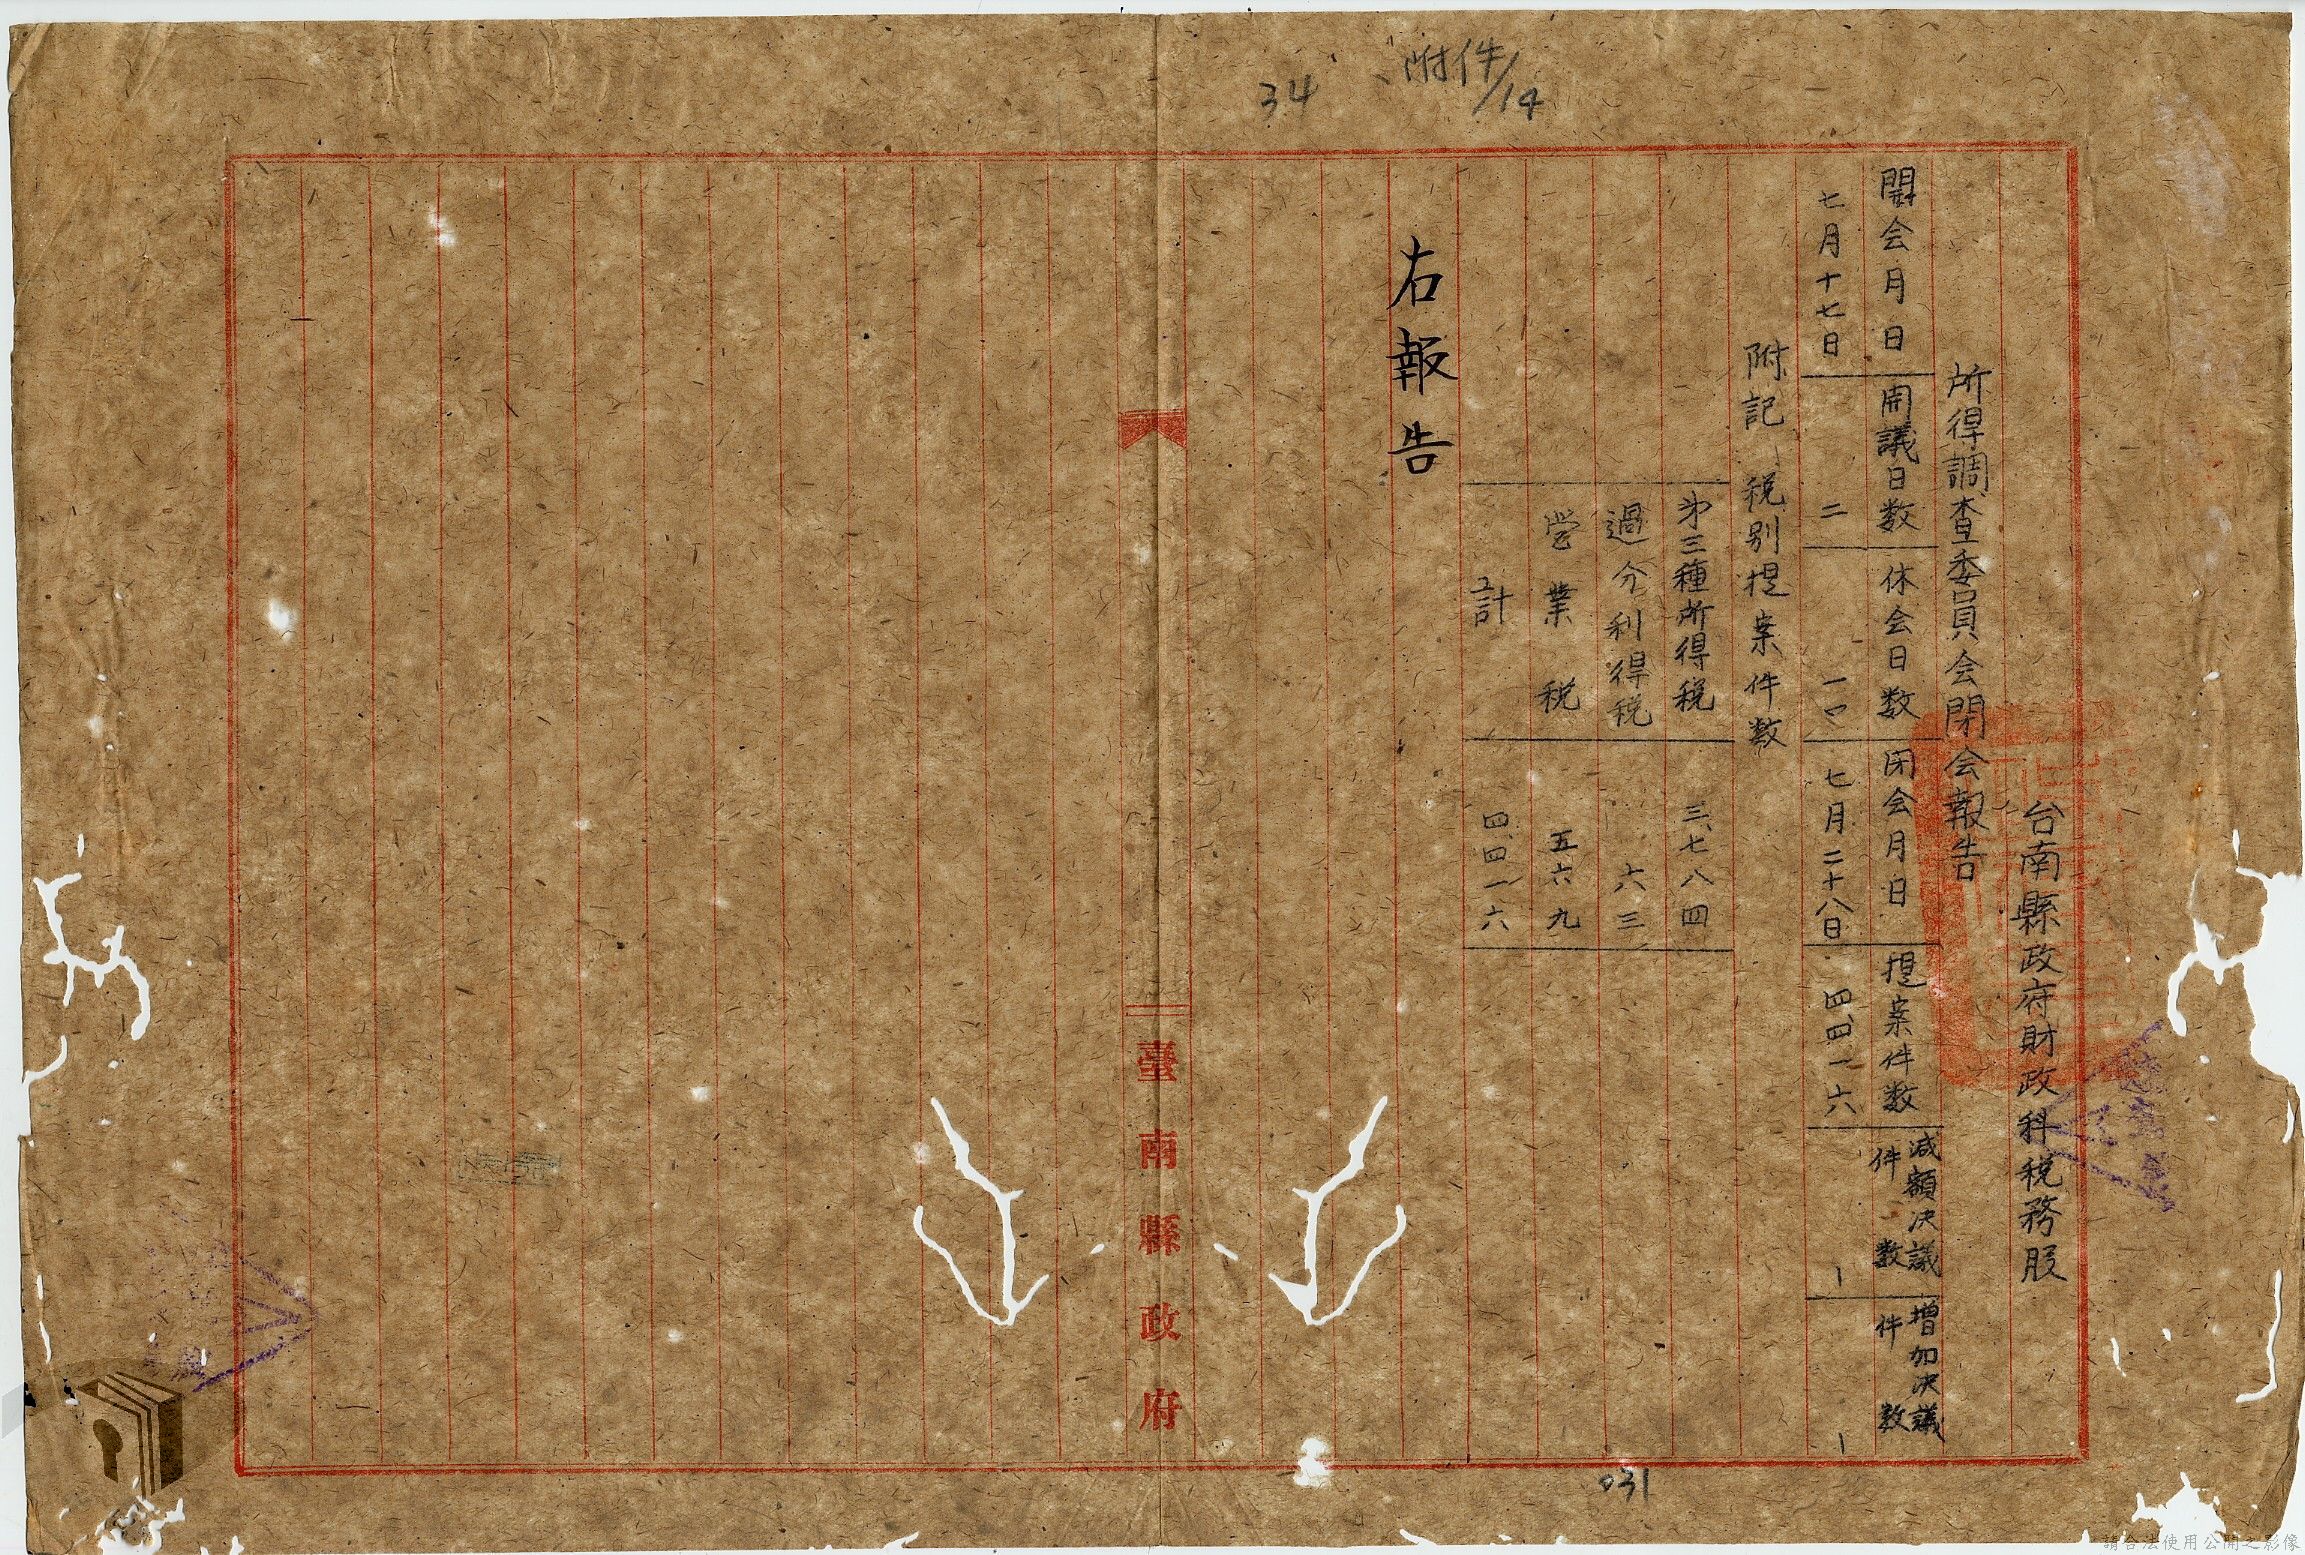 附件/14
34
台南縣政府財政科税務股
所得調查委員会閉会報告
開会月日 開議日数 休会日数 閉会月日 提案件数 減額決議件数 増加決議件数
七月十七日 二 一〇 七月二十八日 四、四一六 ー ー
附記、税別提案件数
第三種所得税 三、七八四
過分利得税 六三
営業税 五六九
計 四、四一六
右報告
臺南縣政府
031
請合法使用公開之影像